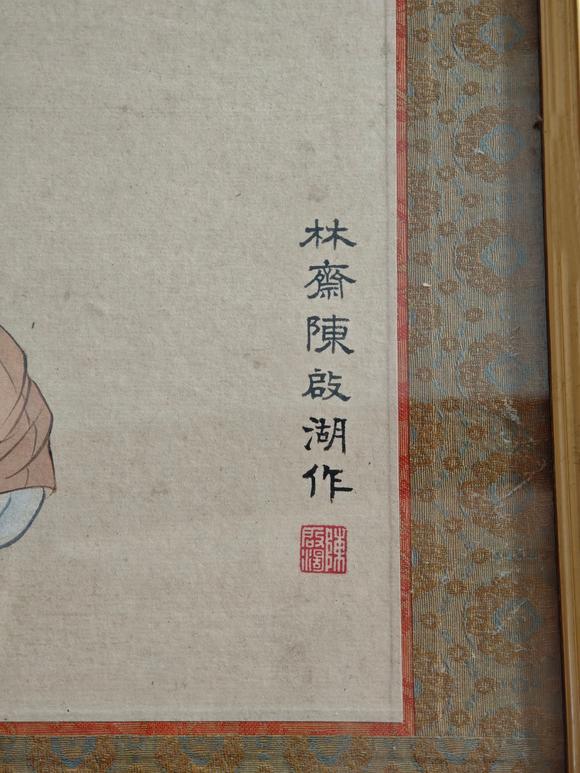 林齋陳啟湖作
陳啟湖